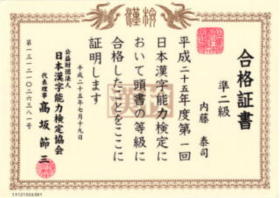 漢検
合格証書
準二級
内藤 泰司
平成二十五年度第一回
日本漢字能力検定に
おいて頭書の等級に
合格したことをここに
証明します
平成二十五年七月十九日
公益財団法人
日本漢字能力検定協会
代表理事 高坂 節三